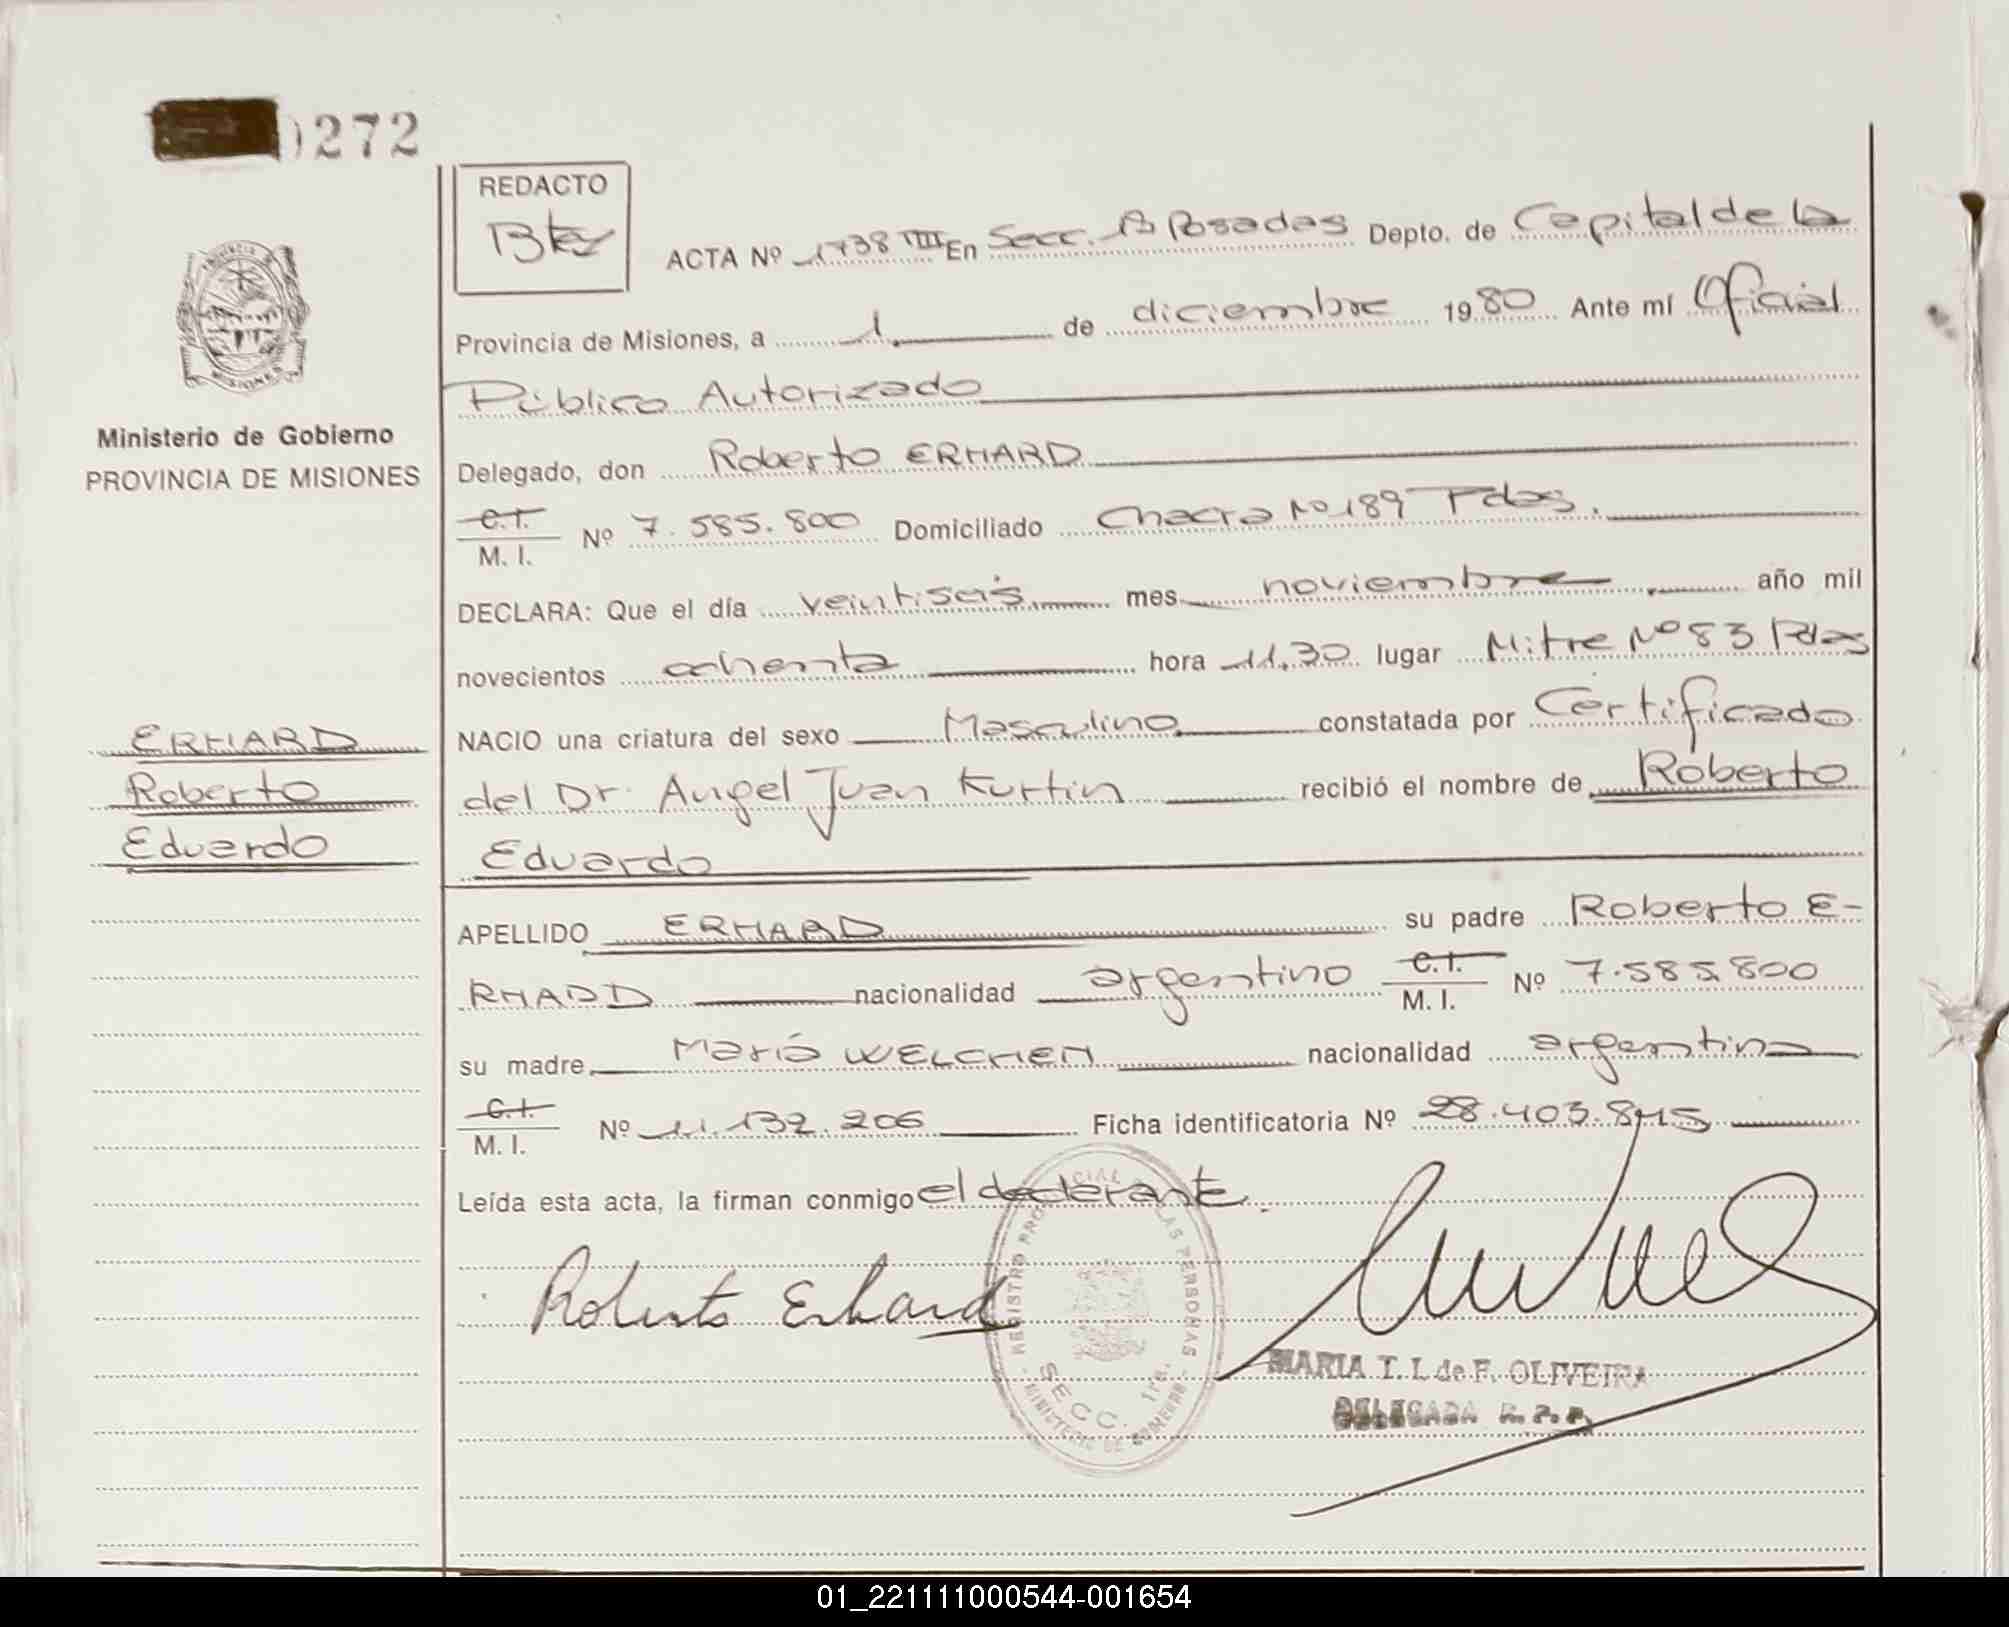 272
REDACTO
ACTA Nº 1738 VIII En Secc. 1a Posadas Depto. de Capital de la
Provincia de Misiones, a 1 de diciembre 1980 Ante mí Oficial
Público Autorizado
MISIONES
Ministerio de Gobierno
PROVINCIA DE MISIONES
Delegado, don Roberto ERHARD
C.I.
M. I. Nº 7.585.800 Domiciliado Chacra Nº 189 Pdas.
DECLARA: Que el día veintiseis mes noviembre año mil
novecientos ochenta hora 11,30 lugar Mitre Nº 83 Pdas
ERHARD
Roberto
Eduardo
NACIO una criatura del sexo Masculino constatada por Certificado
del Dr. Angel Juan Kurtin recibió el nombre de Roberto
Eduardo
APELLIDO ERHARD su padre Roberto E-
RHARD nacionalidad argentino C.I. M. I. Nº 7.585.800
su madre María WELCHEN nacionalidad argentina
C.I.
M. I. Nº 11.132.206 Ficha identificatoria Nº 28.403.845
Leída esta acta, la firman conmigo el declarante.
Roberto Erhard
REGISTRO PROVINCIAL DE LAS PERSONAS
SECC. 1ra.
MINISTERIO DE GOBIERNO
MARIA T. I. de F. OLIVEIRA
DELEGADA R. P. P.
01_221111000544-001654